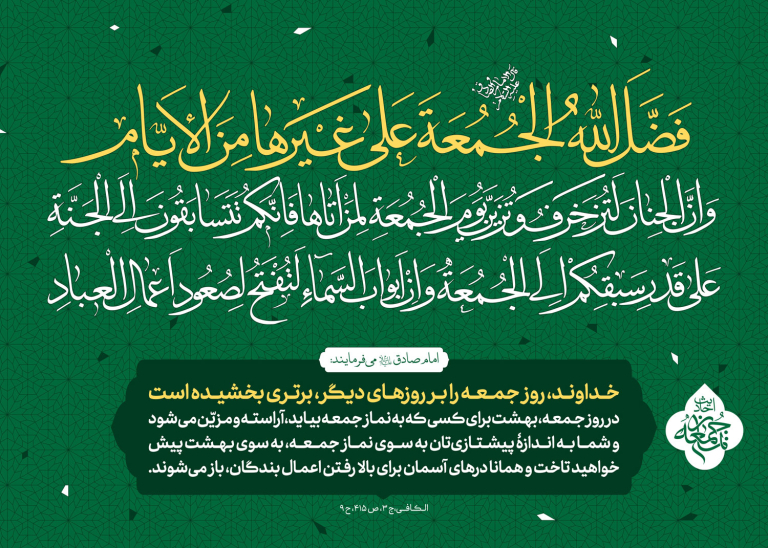 فَضَّلَ اللّهُ الْجُمُعَةَ عَلى غَيْرِها مِنَ الْأَيّام
وَاِنَّ الْجِنانَ لَتُزَخْرَفُ وَتُزَيَّنُ يَوْمَ الْجُمُعَةِ لِمَنْ أَتاها فَاِنَّكُمْ تَتَسابَقُونَ اِلَى الْجَنَّةِ
عَلى قَدْرِ سَبْقِكُمْ اِلَى الْجُمُعَةِ وَاِنَّ اَبْوابَ السَّماءِ لَتُفْتَحُ لِصُعُودِ اَعْمالِ الْعِبادِ
امام صادق می‌فرمایند:
خداوند، روز جمعه را بر روزهای دیگر، برتری بخشیده است
در روز جمعه، بهشت برای کسی که به نماز جمعه بیاید، آراسته و مزیّن می‌شود
و شما به اندازهٔ پیشتازی‌تان به سوی نماز جمعه، به سوی بهشت پیش
خواهید تاخت و همانا درهای آسمان برای بالا رفتن اعمال بندگان، باز می‌شوند.
احادیث
نماز جمعه
الکافی، ج ۳، ص ۴۱۵، ح ۹